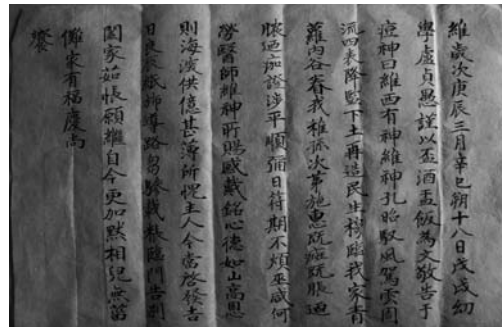 維歲次庚辰三月辛巳朔十八日戊戌幼
學盧貞愚謹以盃酒盂飯為文敬告于
痘神曰維西有神維神孔昭馭風駕雲周
流四表降監下土再造民生臨我家青
蘿內谷眷我稚孫次第施惠旣痘旣脹過
膿過痂證涉平順彌日符期不煩巫咸何
勞醫師維神所賜感戴銘心德如山高恩
則海濱供億甚薄所愧主人今當啓發吉
日良辰紙導路芻驂載粻臨門告別
闔家茹悵願繼自今更加默相兒無菑
家有福慶尚
饗